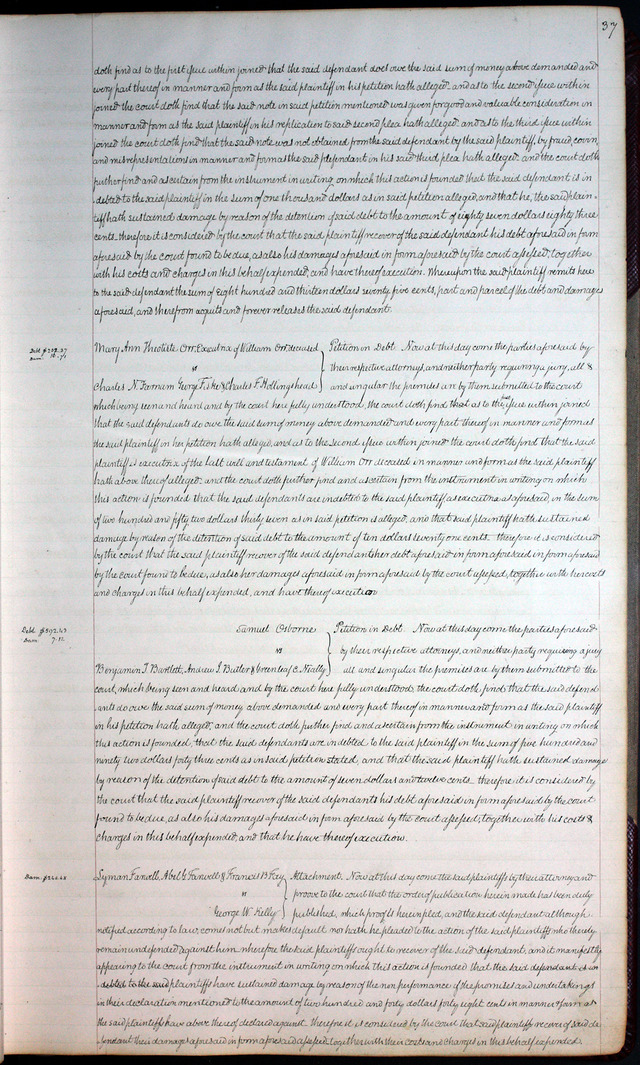 37
doth find as to the first issue within joined that the said defendant does owe the said sum of money above demanded and
every part thereof in manner and form as the said plaintiff in his petition hath alleged. and as to the second issue within
joined the court doth find that the said note in said petition mentioned was given for good and valuable consideration in
manner and form as the said plaintiff in his replication to said second plea hath alleged. and as to the third issue within
joined the court doth find that the said note was not obtained from the said defendant by the said plaintiff, by fraud, covin,
and misrepresentations in manner and form as the said defendant in his said third plea hath alleged. and the court doth
further find and ascertain from the instrument in writing on which this action is founded that the said defendant is in-
debted to the said plaintiff in the sum of one thousand dollars as in said petition alleged, and that he, the said plain-
tiff hath sustained damage by reason of the detention of said debt to the amount of eighty seven dollars eighty three
cents. therefore it is considered by the court that the said plaintiff recover of the said defendant his debt aforesaid in form
aforesaid by the court found to be due, as also his damages aforesaid in form aforesaid by the court assessed, together
with his costs and charges in this behalf expended, and have thereof execution. Whereupon the said plaintiff remits here
to the said defendant the sum of eight hundred and thirteen dollars seventy five cents, part and parcel of the debt and damages
aforesaid, and therefrom acquits and forever releases the said defendant.
Debt $252.37
Dam. 10.71
Mary Ann Theotiste Orr, Executrix of William Orr deceased
vs
Charles N. Farnam George Fiske & Charles F. Hollingshead
Petition in Debt. Now at this day come the parties aforesaid by
their respective attorneys, and neither party requiring a jury, all &
and singular the premises are by them submitted to the court
which being seen and heard and by the court here fully understood, the court doth find that as to the first issue within joined
that the said defendants do owe the said sum of money above demanded and every part thereof in manner and form as
the said plaintiff in her petition hath alleged, and as to the second issue within joined the court doth find that the said
plaintiff is executrix of the last will and testament of William Orr deceased in manner and form as the said plaintiff
hath above thereof alleged. and the court doth further find and ascertain from the instrument in writing on which
this action is founded that the said defendants are indebted to the said plaintiff as executrix as aforesaid, in the sum
of two hundred and fifty two dollars thirty seven as in said petition is alleged, and that said plaintiff hath sustained
damage by reason of the detention of said debt to the amount of ten dollars seventy one cents. therefore it is considered
by the court that the said plaintiff recover of the said defendants her debt aforesaid in form aforesaid in form aforesaid
by the court found to be due, as also her damages aforesaid in form aforesaid by the court assessed, together with her costs
and charges in this behalf expended, and have thereof execution
Debt $592.43
Dam. 7.12
Samuel Osborne
vs
Benjamin T. Bartlett, Andrew J. Butler & Greenleaf C. Neally
Petition in Debt. Now at this day come the parties aforesaid
by their respective attorneys, and neither party requiring a jury
all and singular the premises are by them submitted to the
court, which being seen and heard, and by the court here fully understood, the court doth find that the said defend-
ants do owe the said sum of money above demanded and every part thereof in manner and form as the said plaintiff
in his petition hath alleged, and the court doth further find and ascertain from the instrument in writing on which
this action is founded, that the said defendants are indebted to the said plaintiff in the sum of five hundred and
ninety two dollars forty three cents as in said petition stated, and that the said plaintiff hath sustained damage
by reason of the detention of said debt to the amount of seven dollars and twelve cents. therefore it is considered by
the court that the said plaintiff recover of the said defendants his debt aforesaid in form aforesaid by the court
found to be due, as also his damages aforesaid in form aforesaid by the court assessed, together with his costs &
charges in this behalf expended, and that he have thereof execution.
Dam. $240.48
Lyman Farwell, Abel G. Farwell & Francis B. Frey
vs
George W. Kelly
Attachment. Now at this day come the said plaintiffs by their attorney and
proove to the court that the order of publication herein made has been duly
published, which proof is herein filed, and the said defendant although
notified according to law, comes not but makes default nor hath he pleaded to the action of the said plaintiffs who thereby
remain undefended against him. wherefore the said plaintiffs ought to recover of the said defendant. and it manifestly
appearing to the court from the instrument in writing on which this action is founded that the said defendant is in-
debted to the said plaintiffs have sustained damage by reason of the non performance of the promises and undertakings
in their declaration mentioned to the amount of two hundred and forty dollars forty eight cents in manner & form as
the said plaintiffs have above thereof declared against. therefore it is considered by the court that said plaintiffs recover of said de-
fendant their damages aforesaid in form aforesaid assessed, together with their costs and charges in this behalf expended